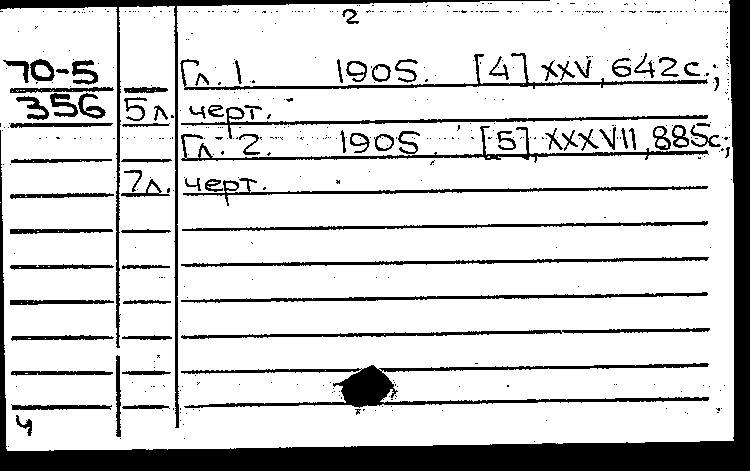 2
70-5 Гл. 1. 1905. [4], XXV, 642с.;
356 5л. черт.
Гл. 2. 1905. [5], XXXVII, 885с.;
7л. черт.
4